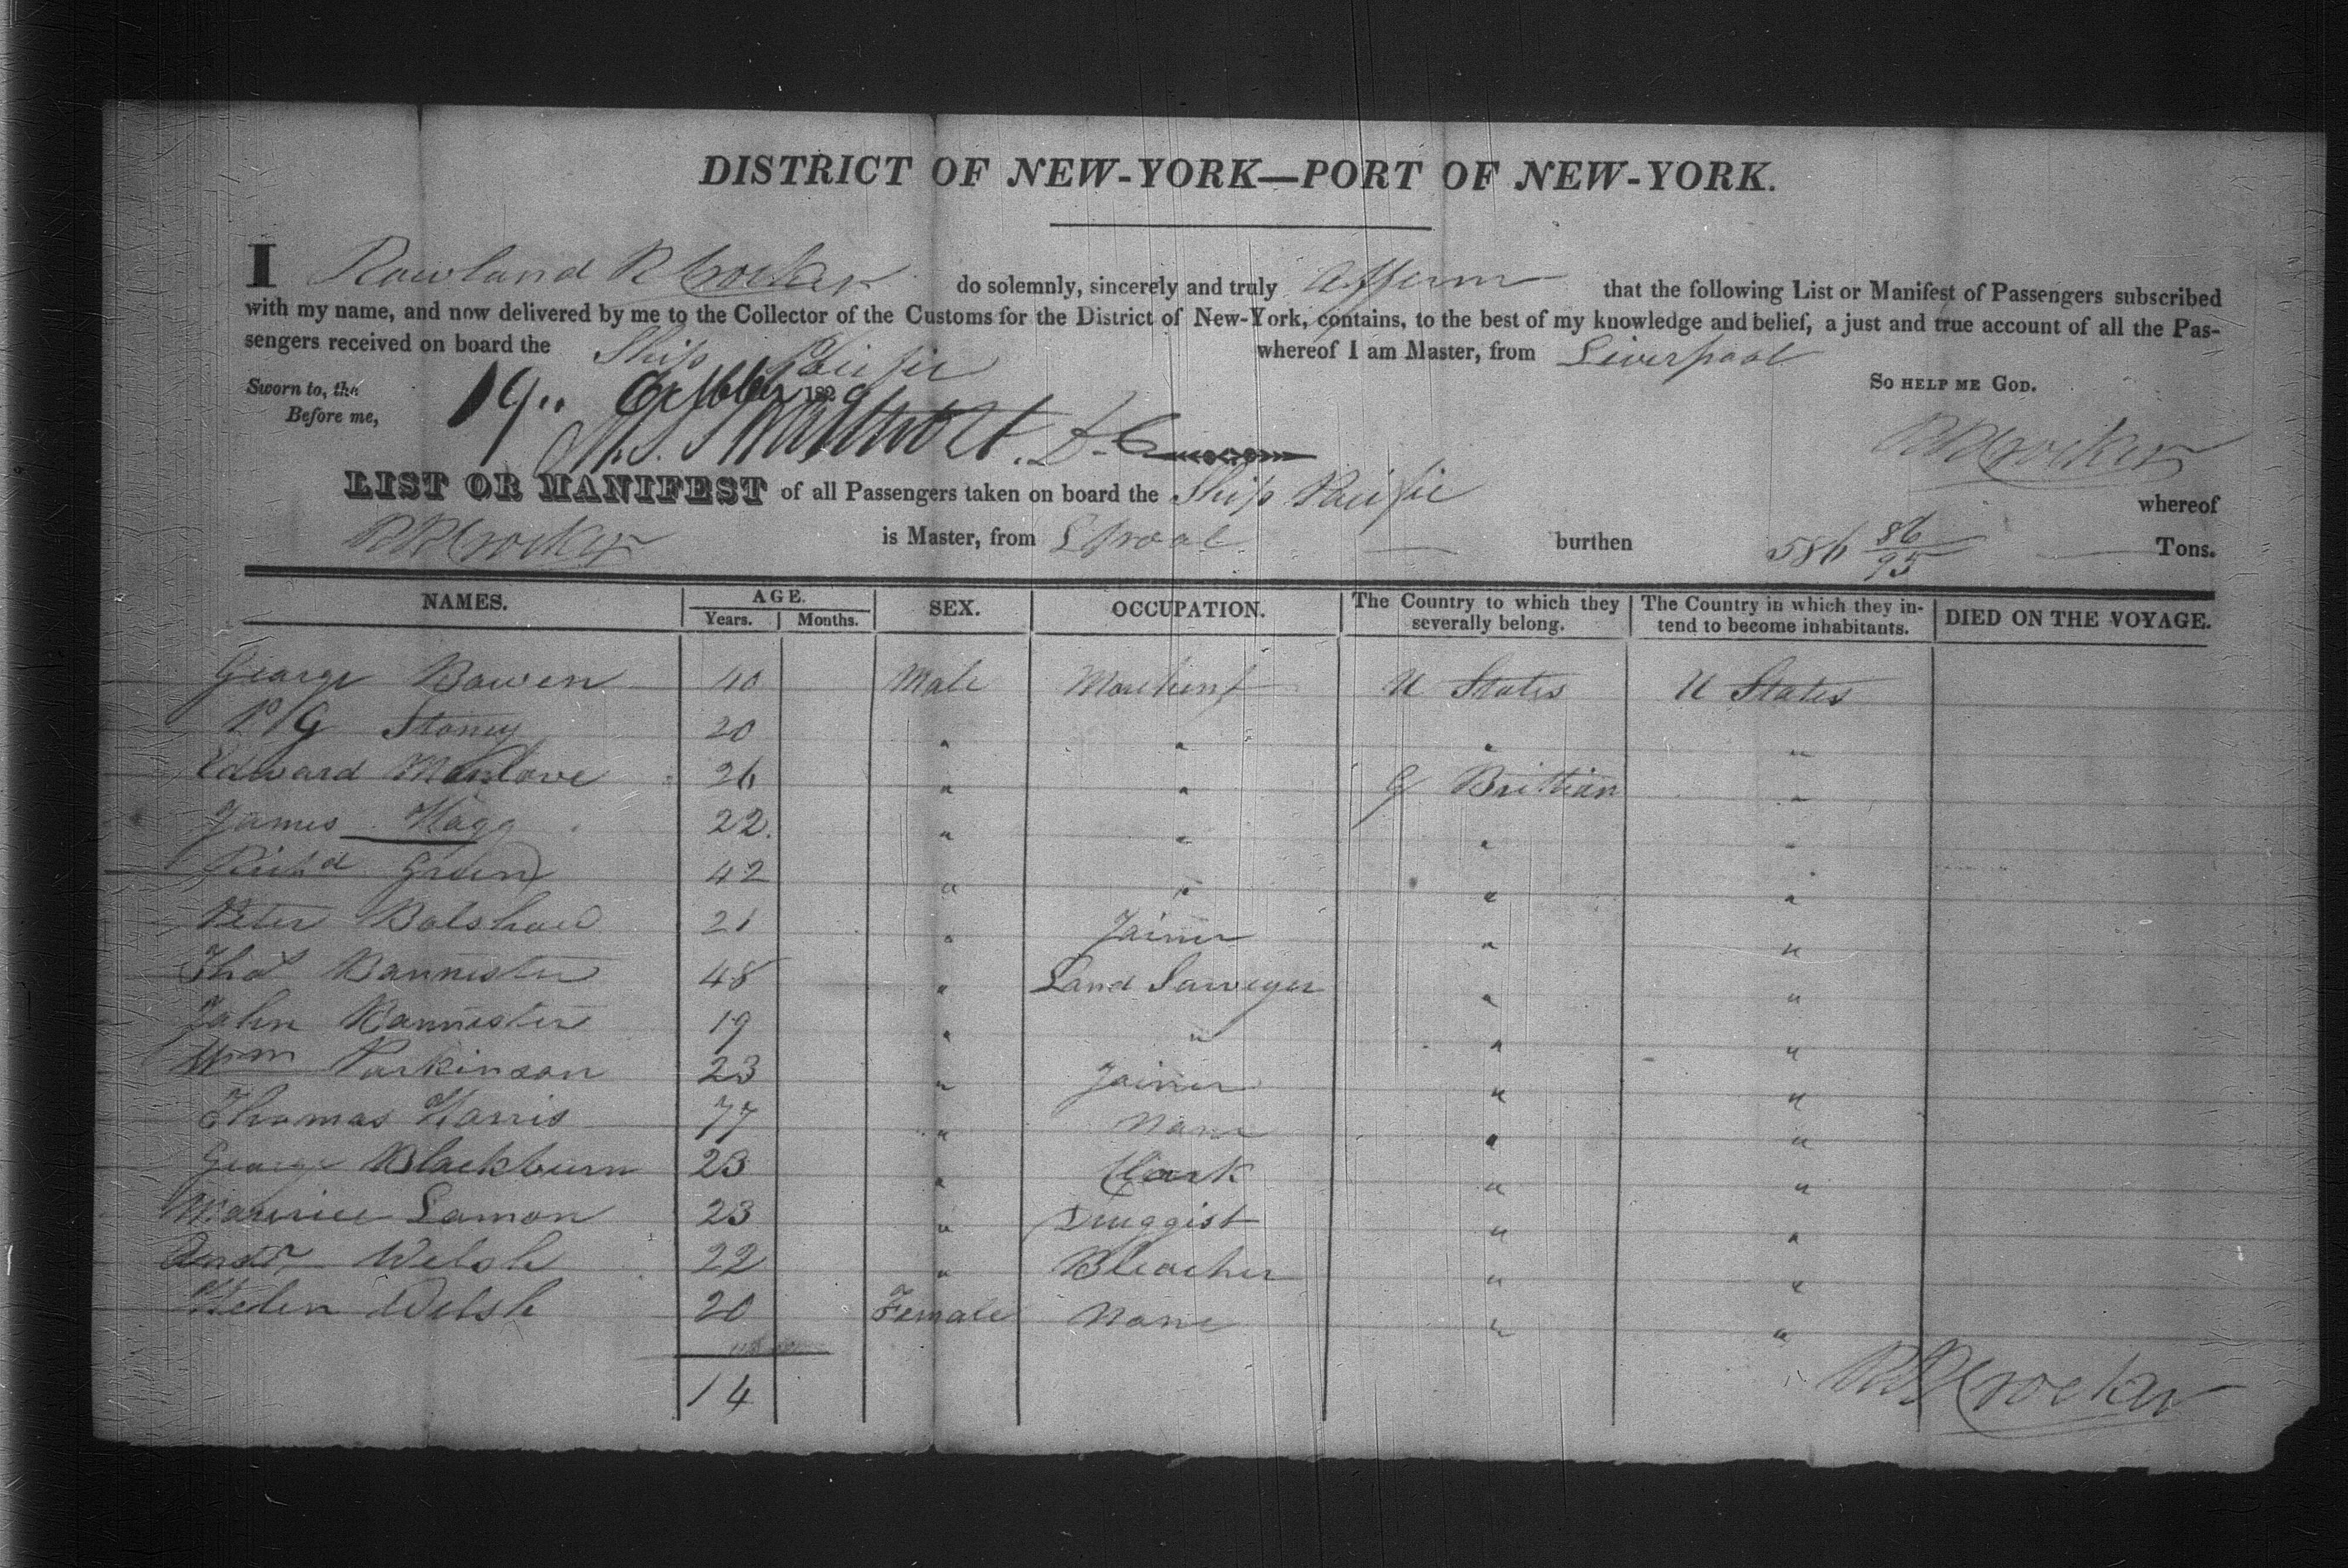 DISTRICT OF NEW-YORK—PORT OF NEW-YORK.
I Rowland R Crocker do solemnly, sincerely and truly affirm that the following List or Manifest of Passengers subscribed
with my name, and now delivered by me to the Collector of the Customs for the District of New-York, contains, to the best of my knowledge and belief, a just and true account of all the Pas-
sengers received on board the Ship Pacific whereof I am Master, from Liverpool
Sworn to, the 19 October 1829 SO HELP ME GOD.
Before me, RR Crocker
LIST OR MANIFEST of all Passengers taken on board the Ship Pacific whereof
RR Crocker is Master, from Lpool burthen 586 86/95 Tons.
NAMES. AGE. SEX. OCCUPATION. The Country to which they severally belong. The Country in which they in-tend to become inhabitants. DIED ON THE VOYAGE.
Years. Months.
George Bowen 40 Male Marchent U States U States
P G Stoney 20 " " " "
Edward Manlove 26 " " G Brittian "
James Hagg 22. " " " "
Richd Green 42 " " " "
Peter Bolshaw 21 " Joiner " "
Thos Bannister 48 " Land Surveyer " "
John Bannister 19 " " " "
Wm Parkinson 23 " Joiner " "
Thomas Harris 77 " None " "
George Blackburn 23 " Clark " "
Maurice Lamon 23 " Druggist " "
Andr Welsh 22 " Bleacher " "
Helen Welsh 20 Female None " "
14 RR Crocker